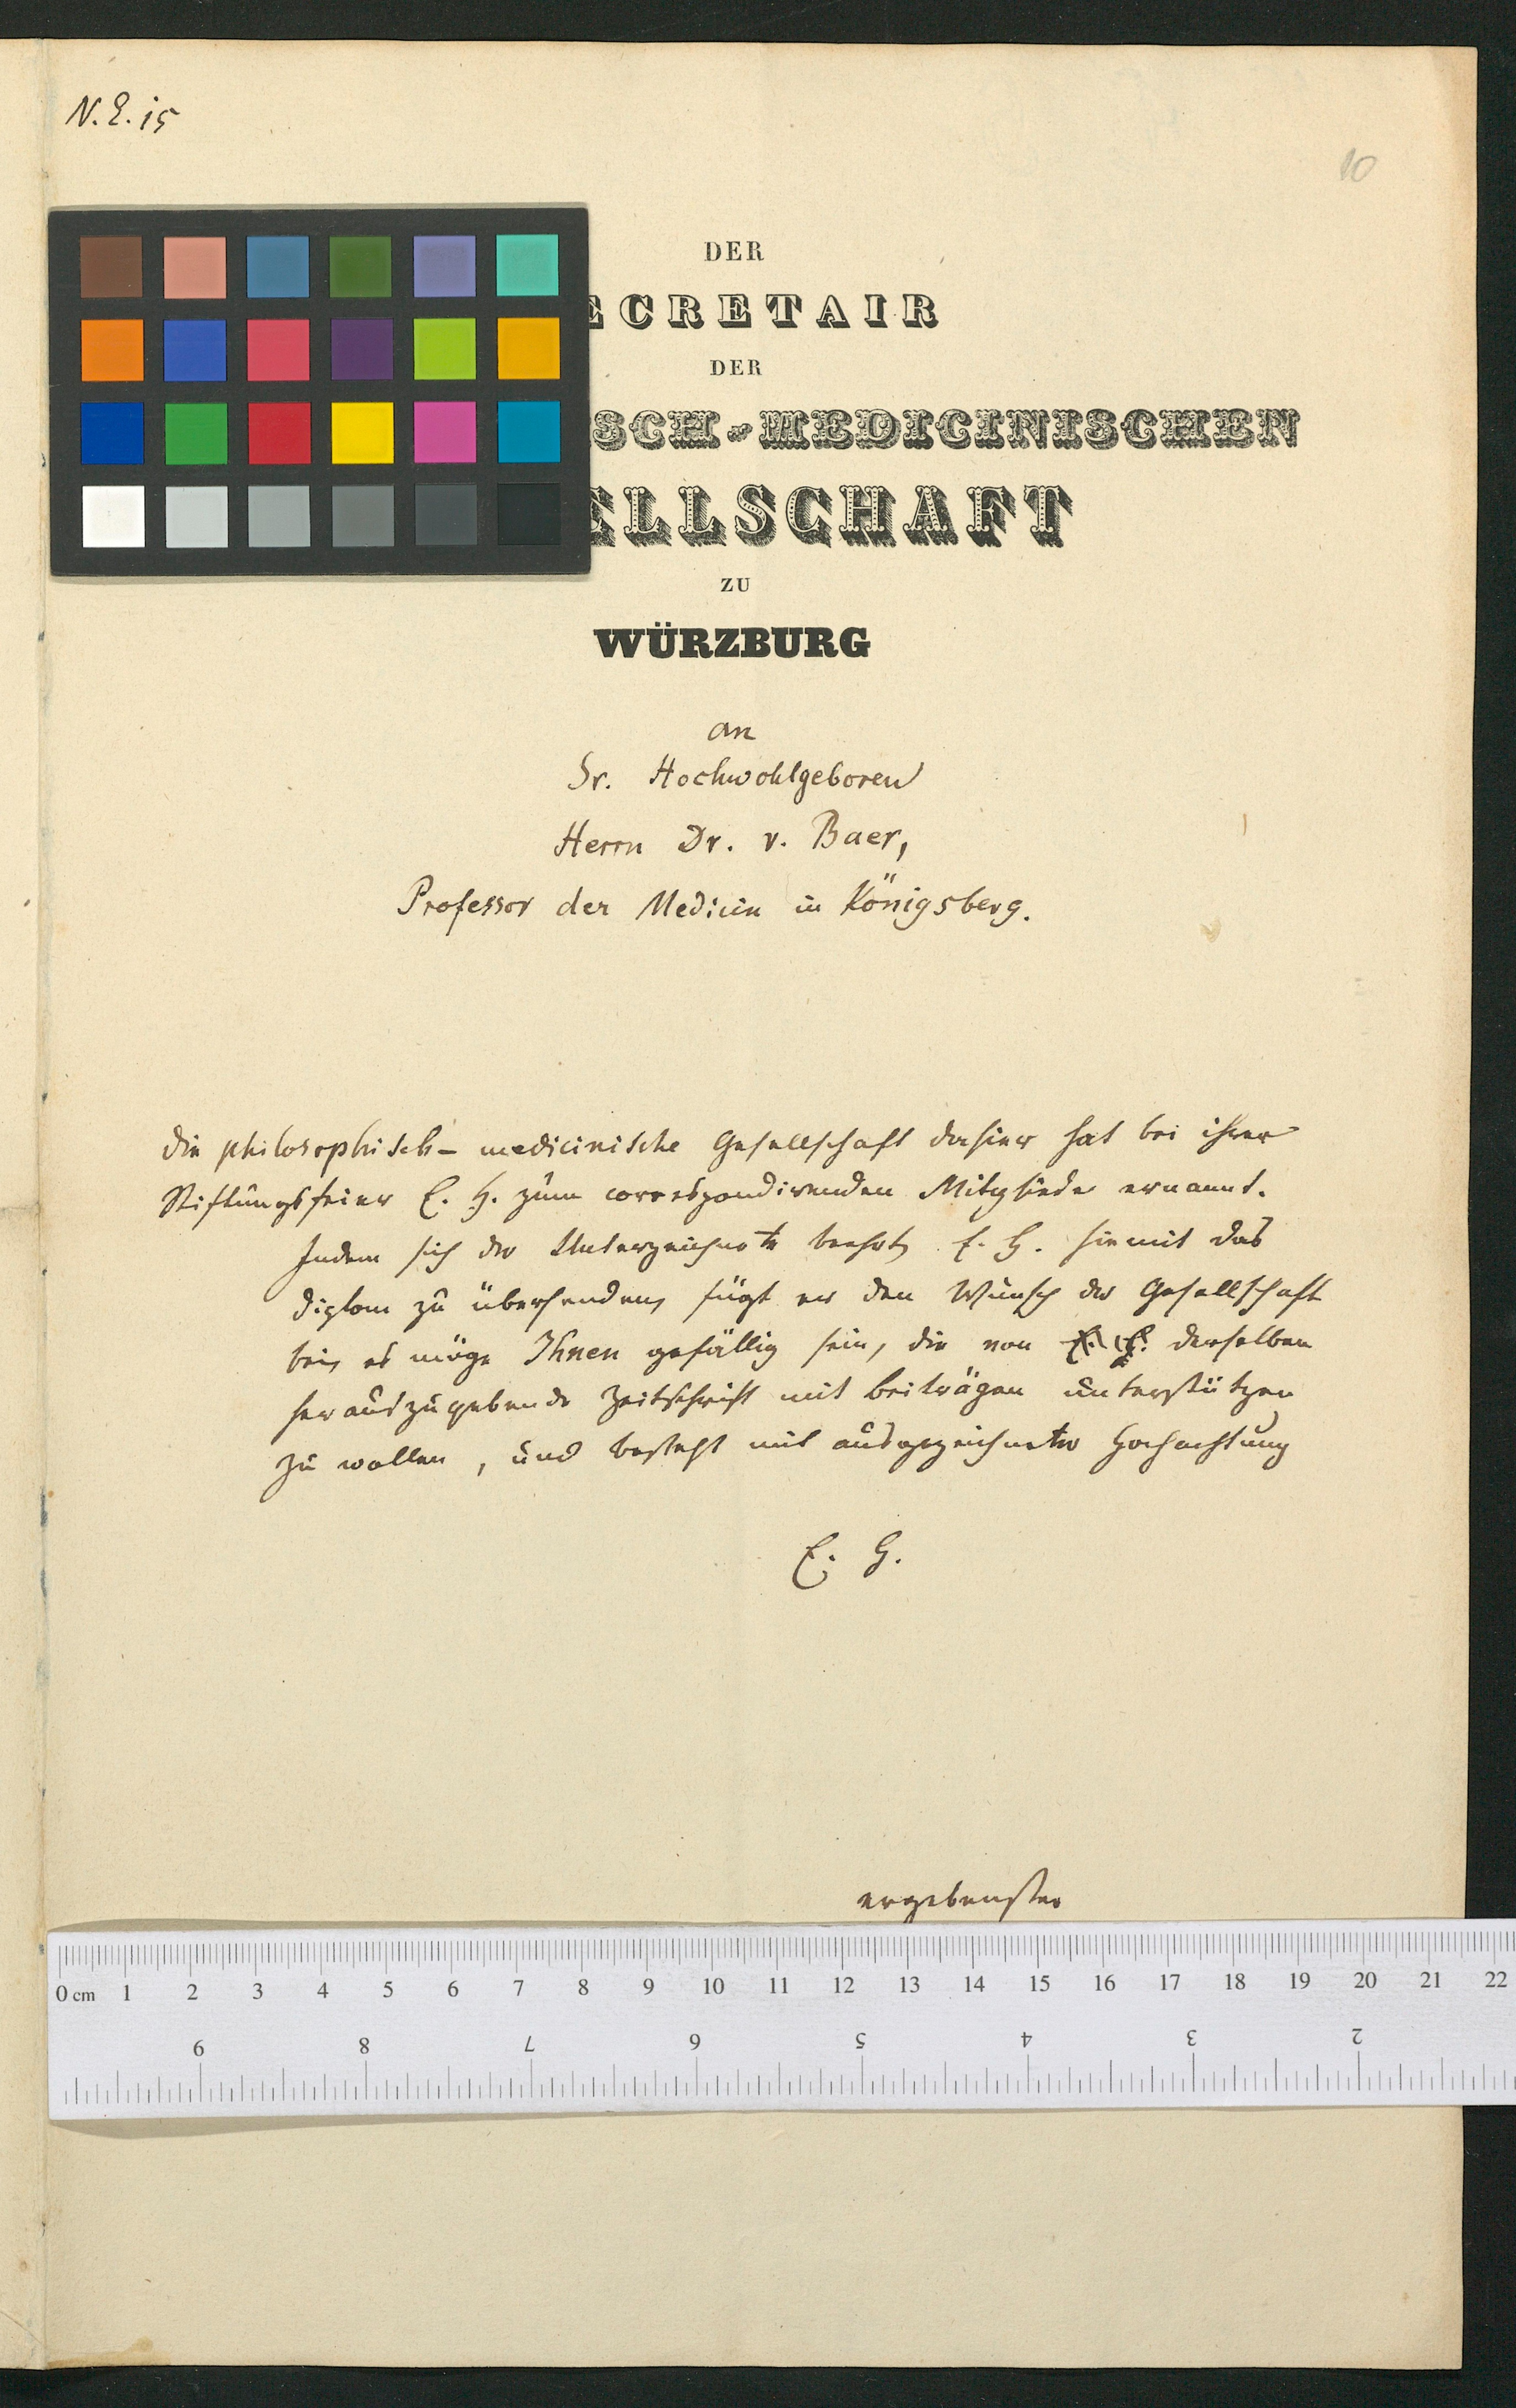 N. E. 15
10
DER
ECRETAIR
DER
SCH-MEDICINISCHEN
ELLSCHAFT
ZU
WÜRZBURG
an
Sr. Hochwohlgeboren
Herrn Dr. v. Baer,
Professor der Medicin in Königsberg.
Die philosophisch-medicinische Gesellschaft dahier hat bei ihrer
Stiftungsfeier E. H. zum correspondirenden Mitgliede ernannt.
Indem sich der Unterzeichnete beehrt, E. H. hiemit das
Diplom zu übersenden, fügt er den Wunsch der Gesellschaft
bei, es möge Ihnen gefällig sein, die von derselben
herauszugebende Zeitschrift mit Beiträgen unterstützen
zu wollen, und besteht mit ausgezeichneter Hochachtung
E. H.
ergebenster
0 cm 1 2 3 4 5 6 7 8 9 10 11 12 13 14 15 16 17 18 19 20 21 22
2 3 4 5 6 7 8 9